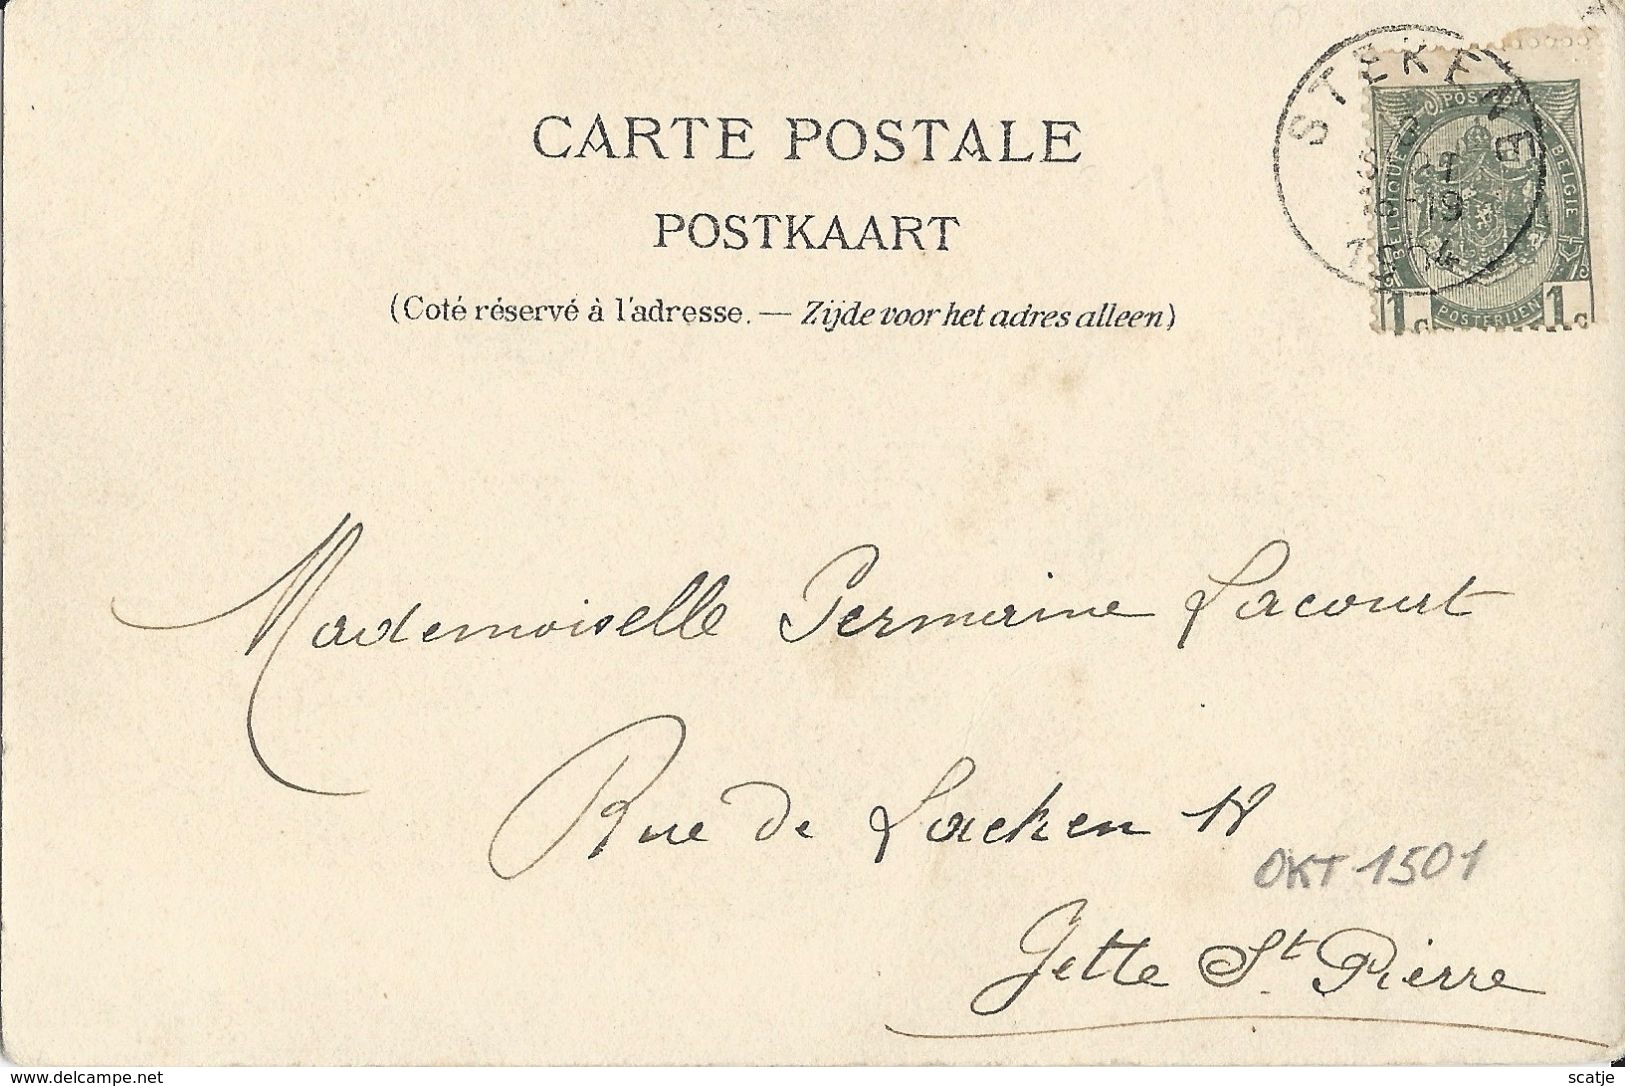 CARTE POSTALE
POSTKAART
(Coté réservé à l'adresse. — Zijde voor het adres alleen)
STEKENE
21
1904
BELGIQUE POSTES BELGIE
POSTERIJEN
1 1
Mademoiselle Germaine Lacourt
Rue de Lacken 18
OKT 1501
Jette St. Pierre
www.delcampe.net
scatje